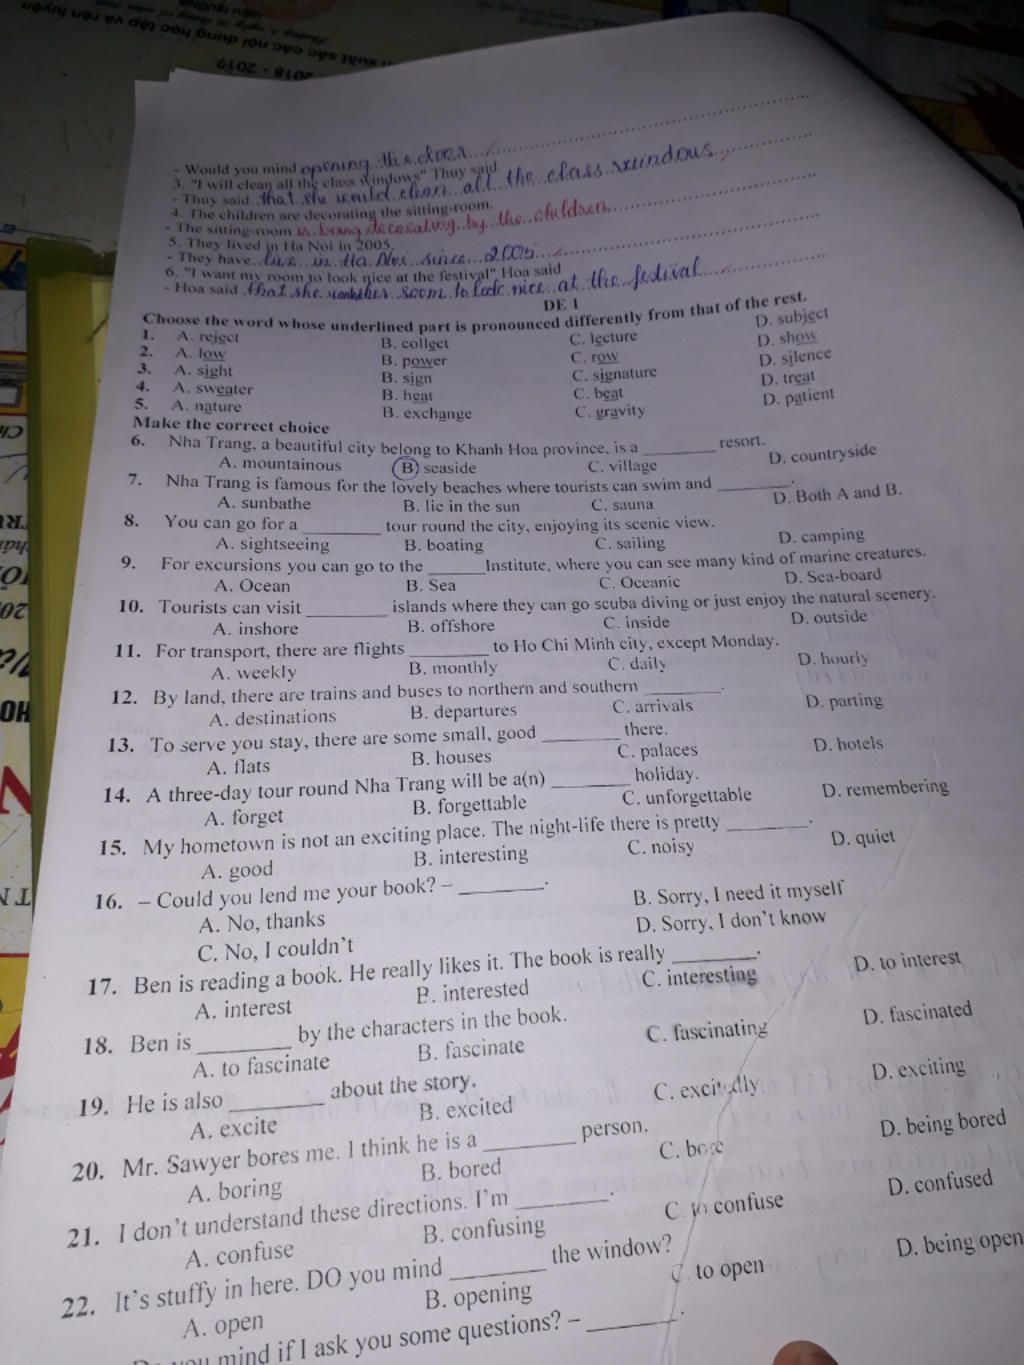 2018 - 2019
- Would you mind opening the door
3. "I will clean all the class windows" Thuy said.
- Thuy said that she would clean all the class windows
4. The children are decorating the sitting-room.
- The sitting-room is being decorating by the children
5. They lived in Ha Noi in 2005.
- They have live in Ha Noi since 2005
6. "I want my room to look nice at the festival" Hoa said
- Hoa said that she her room to look nice at the festival
DE 1
Choose the word whose underlined part is pronounced differently from that of the rest.
1. A. reject B. collect C. lecture D. subject
2. A. low B. power C. row D. show
3. A. sight B. sign C. signature D. silence
4. A. sweater B. heat C. beat D. treat
5. A. nature B. exchange C. gravity D. patient
Make the correct choice
6. Nha Trang, a beautiful city belong to Khanh Hoa province, is a ________ resort.
A. mountainous B. seaside C. village D. countryside
7. Nha Trang is famous for the lovely beaches where tourists can swim and ________.
A. sunbathe B. lie in the sun C. sauna D. Both A and B.
8. You can go for a ________ tour round the city, enjoying its scenic view.
A. sightseeing B. boating C. sailing D. camping
9. For excursions you can go to the ______Institute, where you can see many kind of marine creatures.
A. Ocean B. Sea C. Oceanic D. Sea-board
10. Tourists can visit ________ islands where they can go scuba diving or just enjoy the natural scenery.
A. inshore B. offshore C. inside D. outside
11. For transport, there are flights ________ to Ho Chi Minh city, except Monday.
A. weekly B. monthly C. daily D. hourly
12. By land, there are trains and buses to northern and southern ________.
A. destinations B. departures C. arrivals D. parting
13. To serve you stay, there are some small, good ________ there.
A. flats B. houses C. palaces D. hotels
14. A three-day tour round Nha Trang will be a(n) ________ holiday.
A. forget B. forgettable C. unforgettable D. remembering
15. My hometown is not an exciting place. The night-life there is pretty ________.
A. good B. interesting C. noisy D. quiet
16. – Could you lend me your book? – ________.
A. No, thanks B. Sorry, I need it myself
C. No, I couldn't D. Sorry, I don't know
17. Ben is reading a book. He really likes it. The book is really ________.
A. interest B. interested C. interesting D. to interest
18. Ben is ________ by the characters in the book.
A. to fascinate B. fascinate C. fascinating D. fascinated
19. He is also ________ about the story.
A. excite B. excited C. excitedly D. exciting
20. Mr. Sawyer bores me. I think he is a ________ person.
A. boring B. bored C. bore D. being bored
21. I don't understand these directions. I'm ________.
A. confuse B. confusing C. to confuse D. confused
22. It's stuffy in here. DO you mind ________ the window?
A. open B. opening C. to open D. being open
you mind if I ask you some questions? – ________.